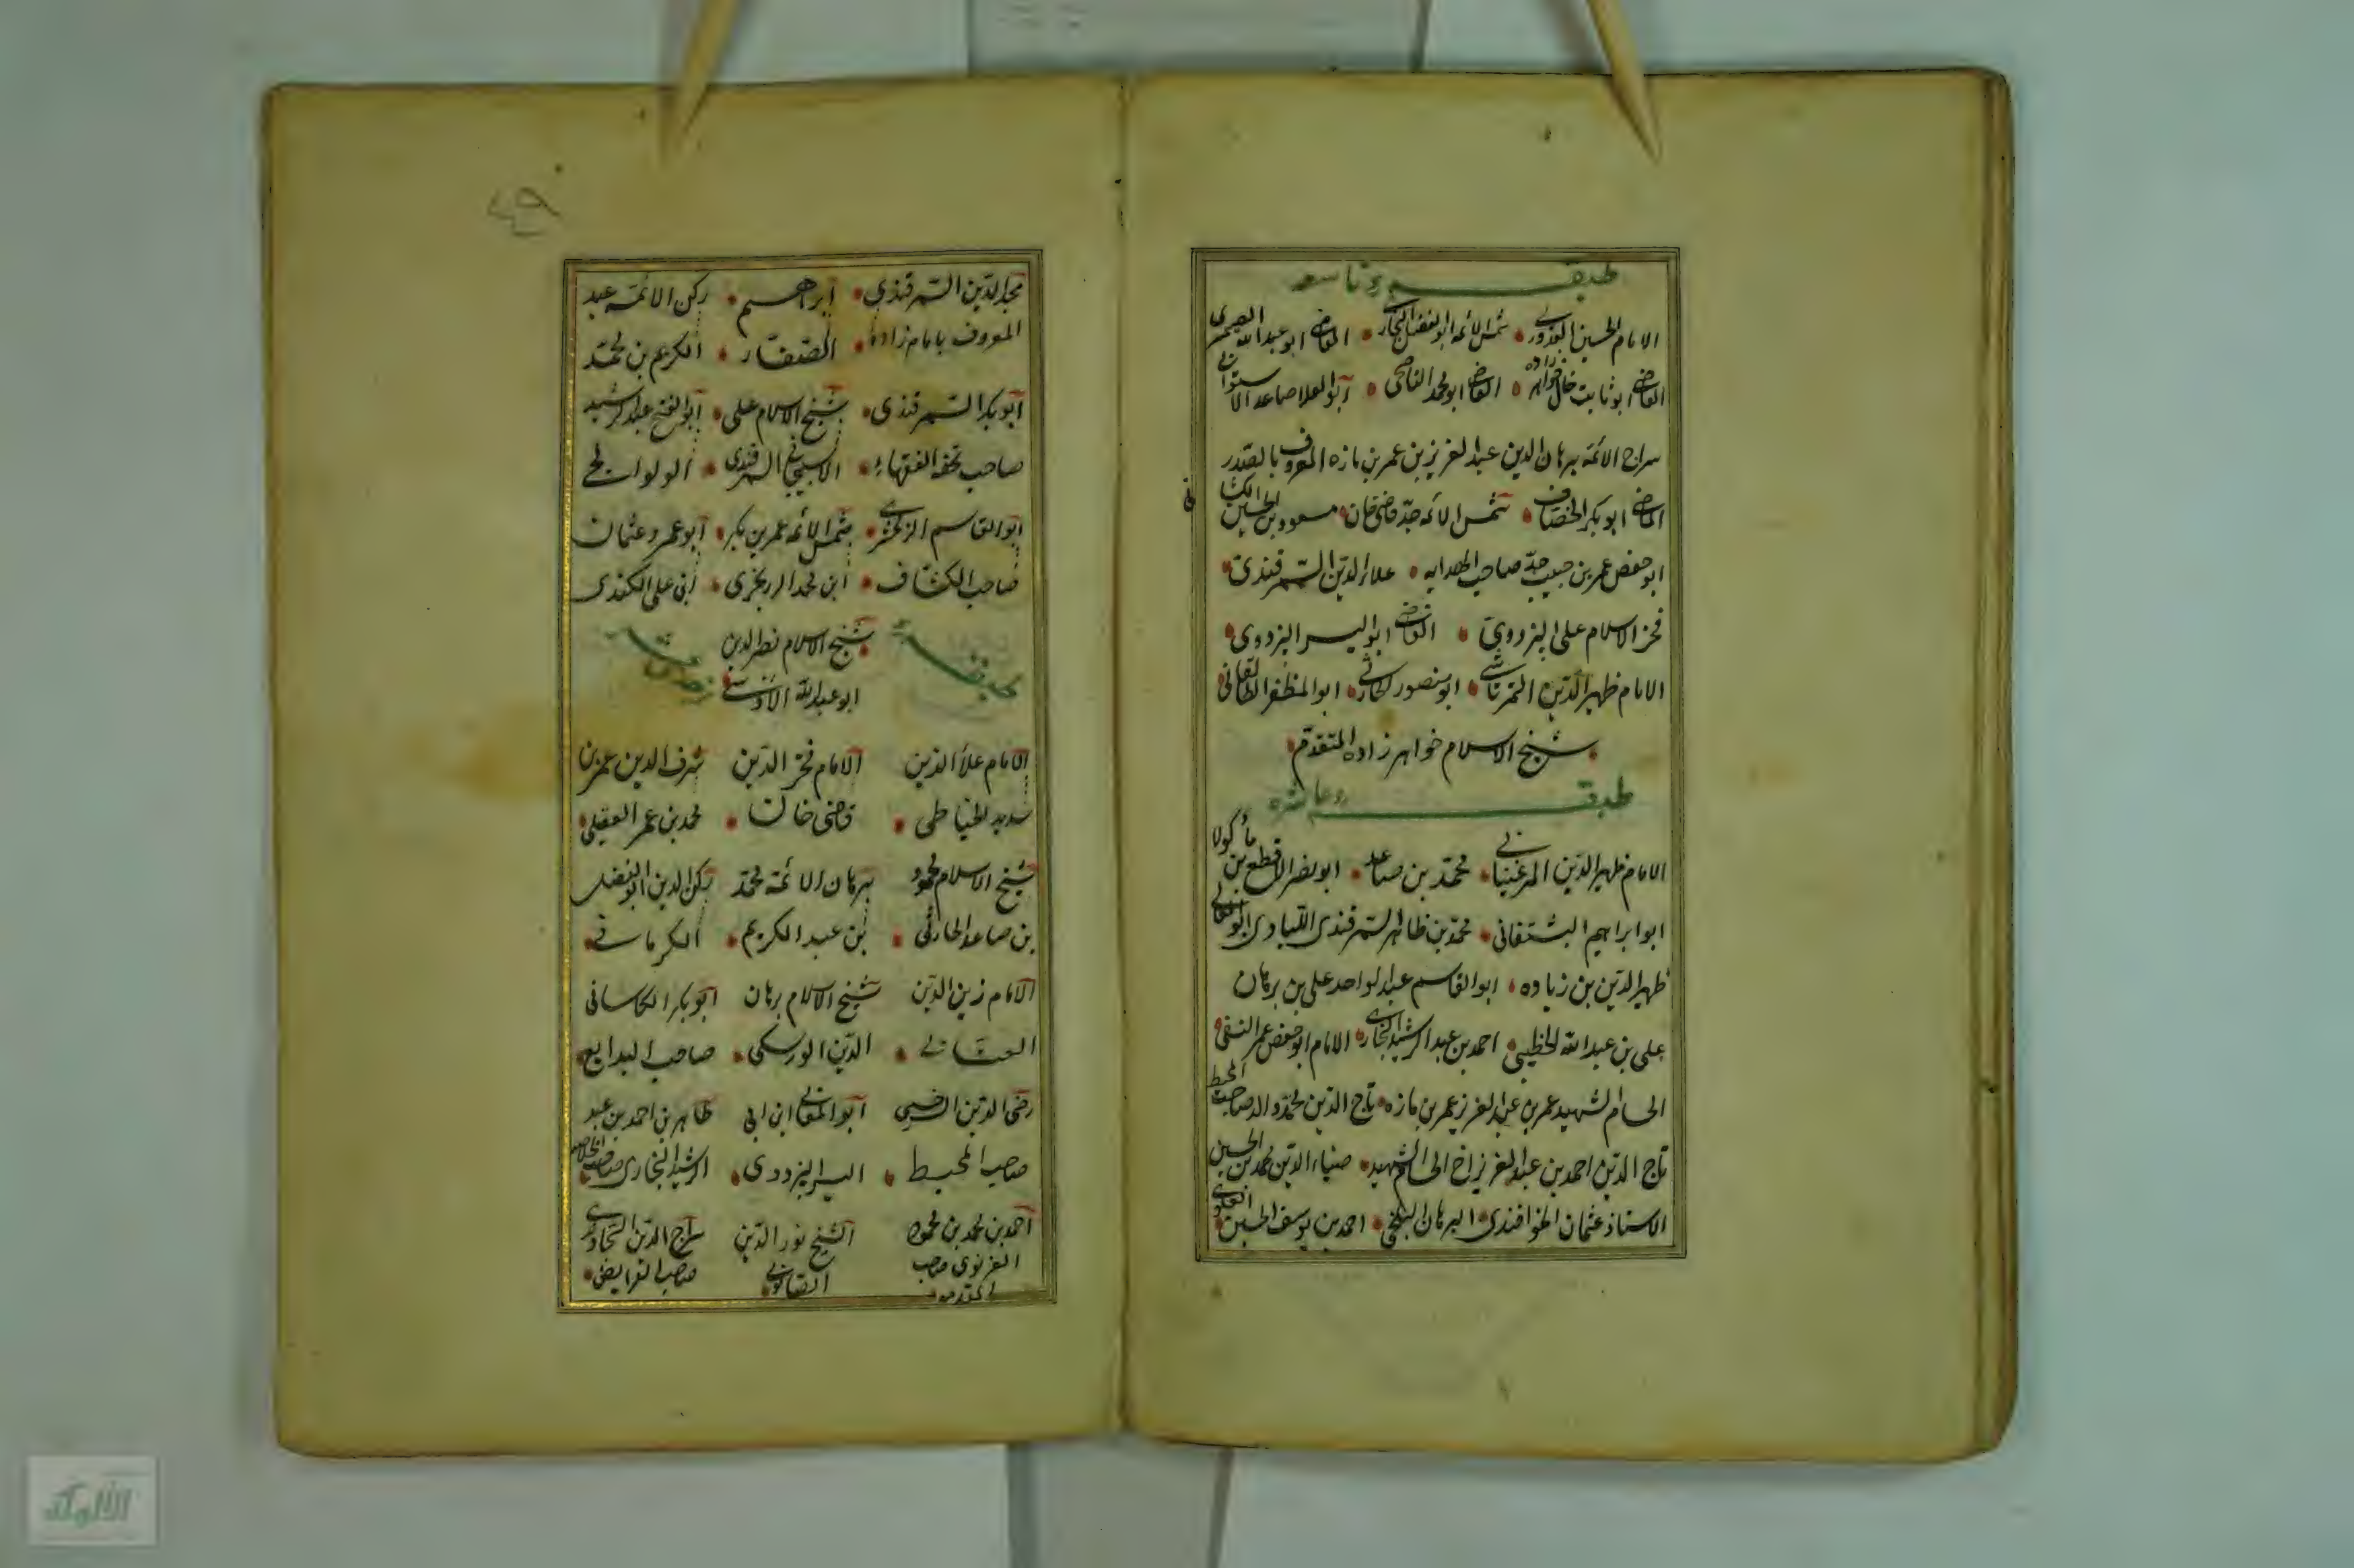 طبقه تاسعه
الامام الحسين القدورى شمس الائمه ابو الفضل القاضى ابو عبد الله الصيمرى
القاضى ابو ثابت خال خواهر زاده القاضى ابو محمد الناصحى ابو العلا صاعد الاستوائى
سراج الائمه برهان الدين عبد العزيز بن عمر بن مازه المعروف بالصدر
القاضى ابو بكر الخصاف شمس الائمه جد قاضى خان مسعود بن الحسين الكشانى
ابو حفص عمر بن حبيب جد صاحب الهدايه علاء الدين السمرقندى
فخر الاسلام على البزدوى القاضى ابو اليسر البزدوى
الامام ظهير الدين التمرتاشى ابو منصور ابو المظفر الطالقانى
شيخ الاسلام خواهر زاده المتقدم
طبقه عاشره
الامام ظهير الدين المرغينانى محمد بن صاعد ابو نصر الاقطع بن ماكولا
ابو ابراهيم محمد بن طاهر السمرقندى اللبادى ابو المعالى
ظهير الدين بن زياده ابو القاسم عبد الواحد على بن برهان
على بن عبد الله الخطيبى احمد بن عبد الرشيد البخارى الامام ابو حفص عمر النسفى
الحسام الشهيد عمر بن عبد العزيز عمر بن مازه تاج الدين محمد والد صاحب المحيط
تاج الدين احمد بن عبد العزيز اخ الحسام الشهيد ضياء الدين محمد بن الحسين
الاستاذ عثمان البرهان البلخى احمد بن يوسف الحسين العلوى
٤٩
مجد الدين السمرقندى ابراهيم ركن الائمه عبد
المعروف بامام زاده الصفار الكريم بن محمد
ابو بكر السمرقندى شيخ الاسلام على ابو الفتح عبد الرشيد
صاحب تحفه الفقهاء الاسبيجابى السمرقندى الولوالجى
ابو القاسم الزمخشرى شمس الائمه عمر بن بكر ابو عمرو عثمان
صاحب الكشاف ابن محمد الزرنجرى ابن على الكندى
طبقه شيخ الاسلام نصر الدين
ابو عبد الله الاوشى
الامام علاء الدين الامام فخر الدين شرف الدين عمر بن
سديد الخياطى قاضى خان محمد بن عمر العقيلى
شيخ الاسلام محمود برهان الائمه محمد ركن الدين ابو الفضل
بن صاعد الحارثى بن عبد الكريم الكرمانى
الامام زين الدين شيخ الاسلام برهان ابو بكر الكاسانى
العتابى الدين الورسكى صاحب البدايع
رضى الدين السرخسى ابو المعالى ابن ابى طاهر بن احمد بن عبد
صاحب المحيط اليسر البزدوى الرشيد البخارى صاحب الخلاصه
احمد بن محمد بن محمود الشيخ نور الدين سراج الدين السجاوندى
الغزنوى صاحب الصابونى صاحب الفرايض
المقدمه
الألوكة